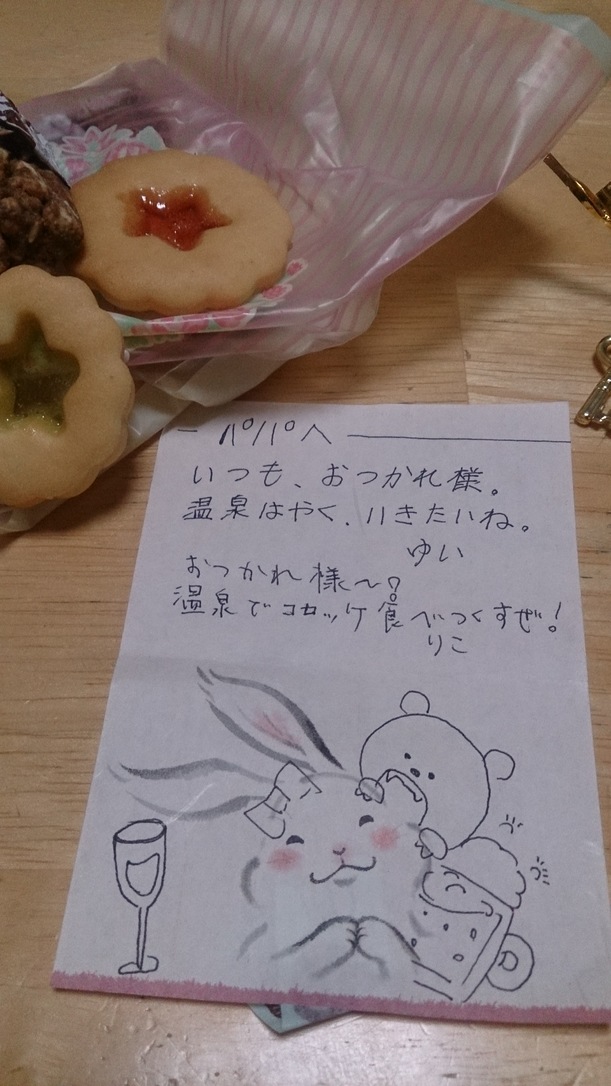 パパへ
いつも、おつかれ様。
温泉はやく、いきたいね。
ゆい
おつかれ様〜?
温泉でコロッケ食べつくすぜ!
りこ